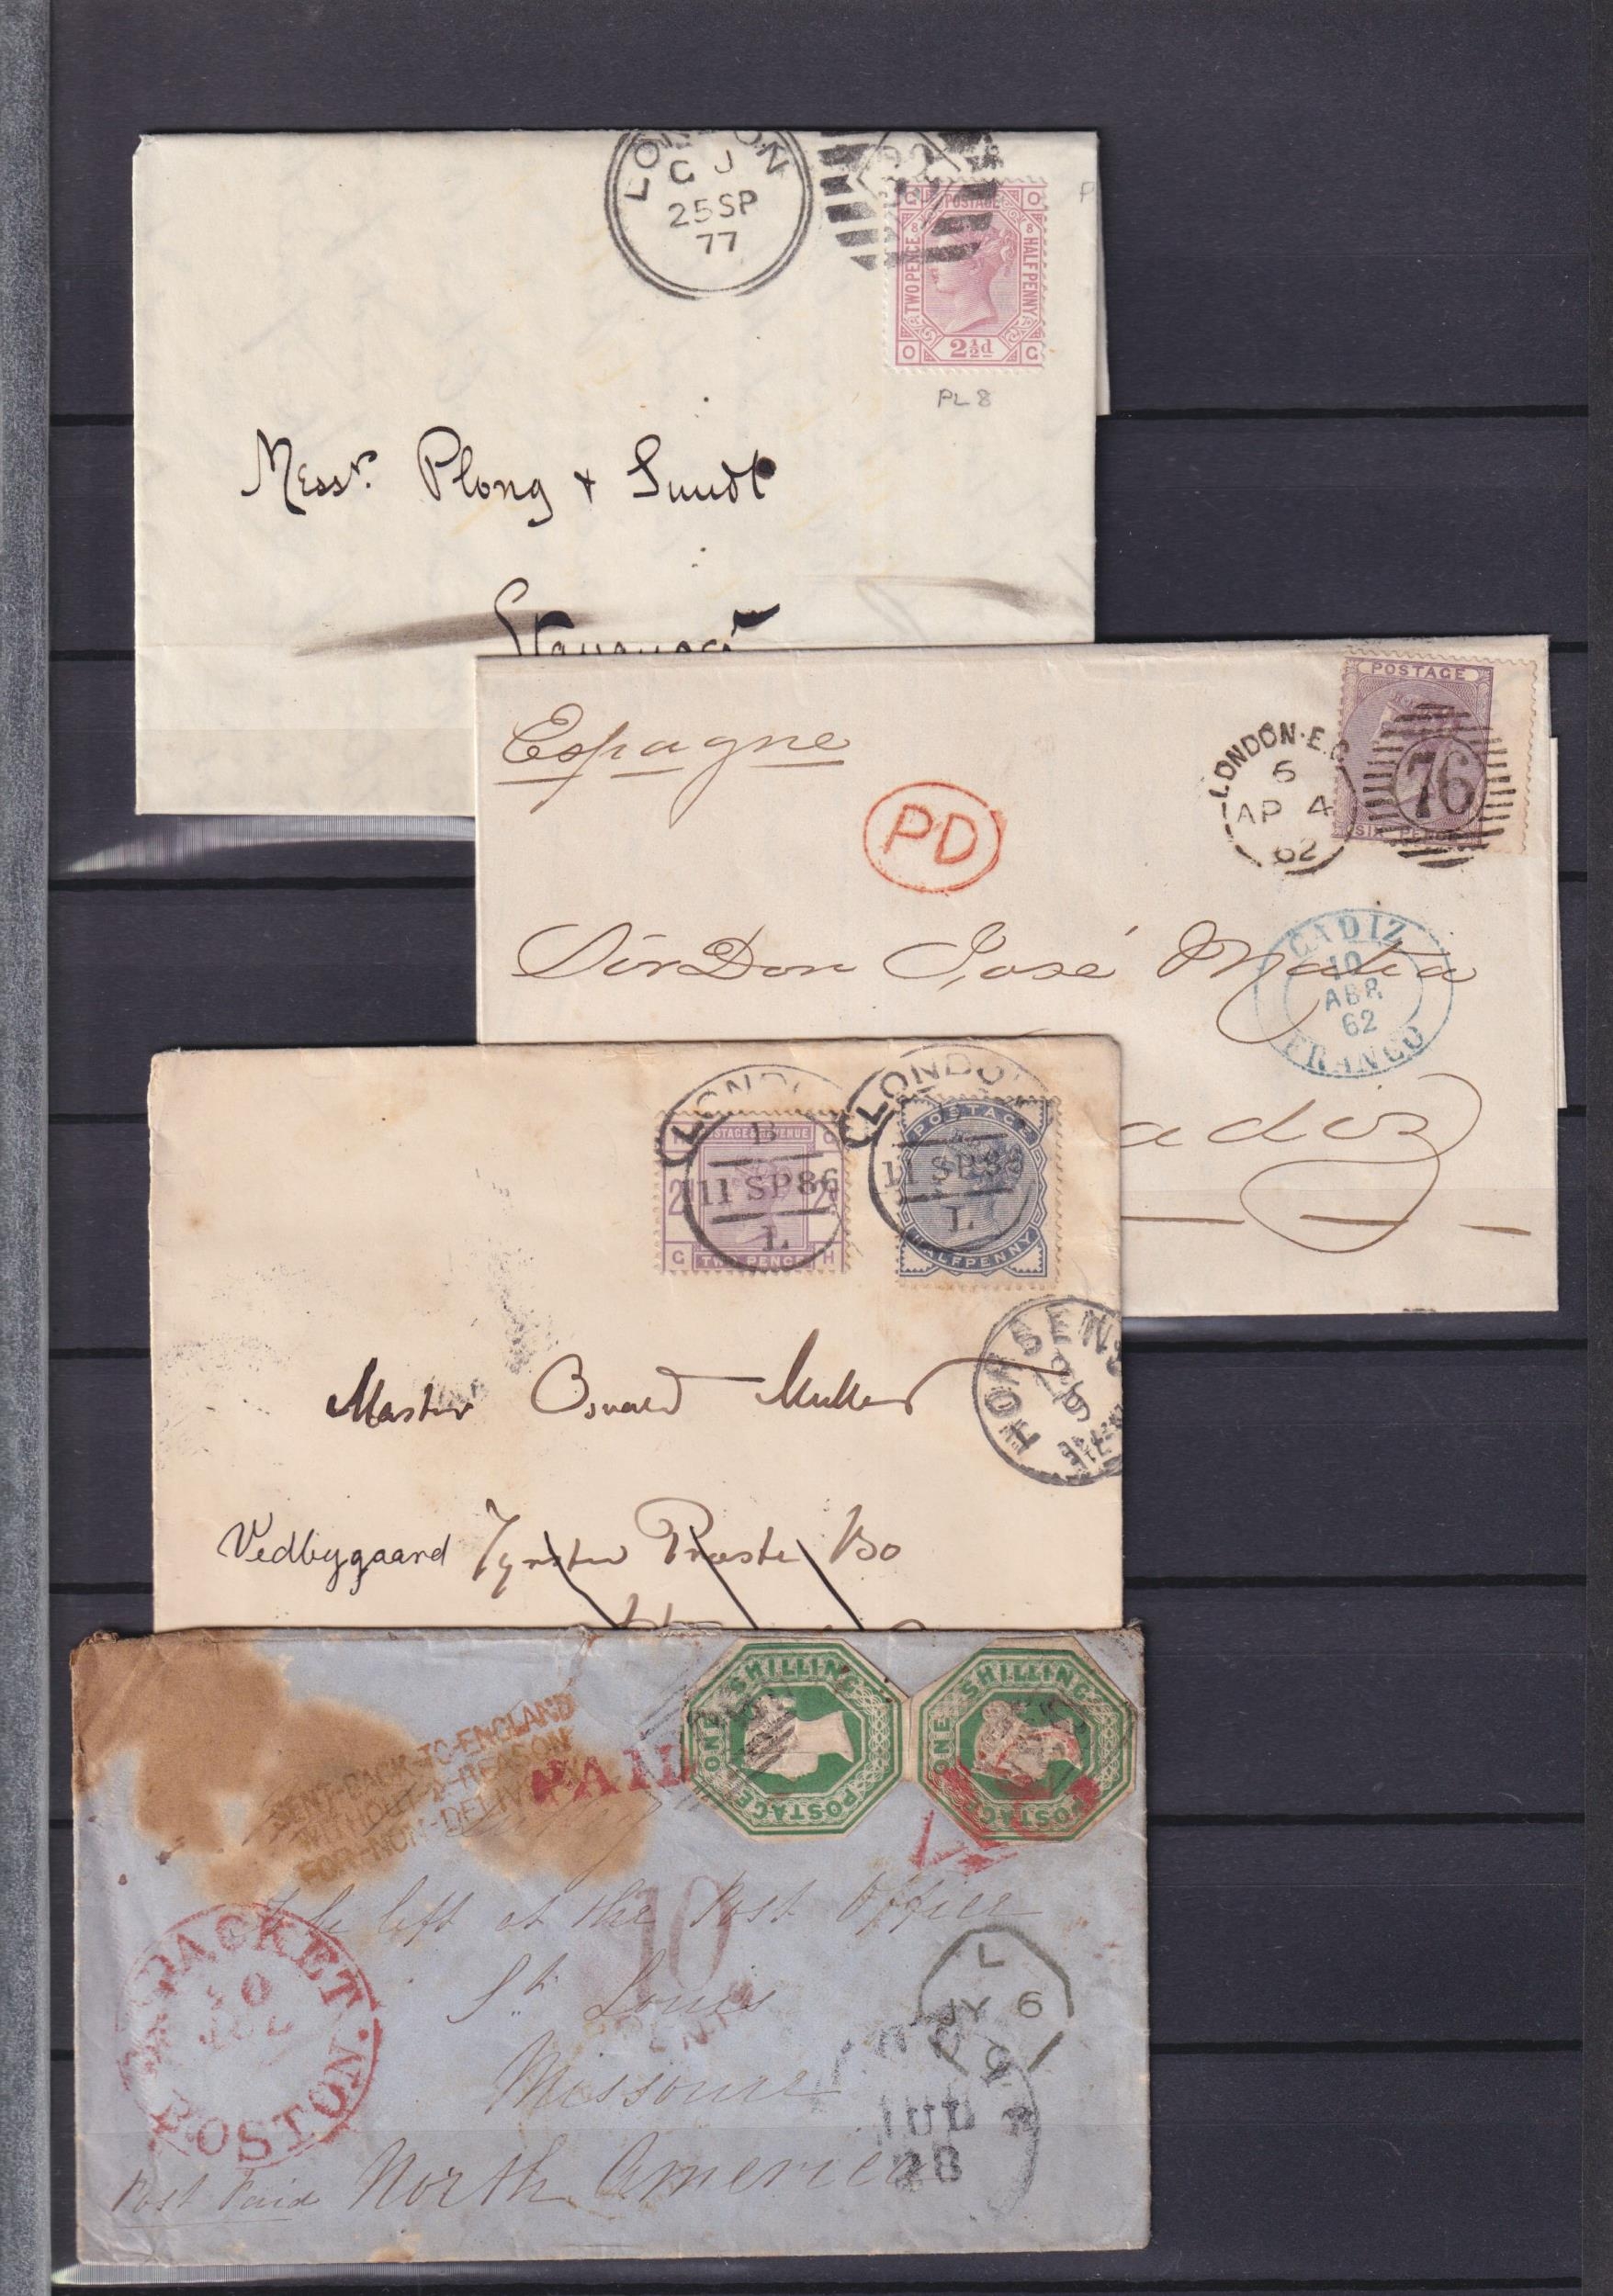 LONDON
C J
25 SP
77
C POSTAGE O
8 8
TWO PENCE HALFPENNY
O 2½d C
PL 8
Messrs. Plong & Sundt
Stavanger
Espagne
PD
LONDON·E.C
6
AP 4
62
POSTAGE
76
SIX PENCE
Sír Don José Matia
CADIZ
10
ABR
62
FRANCO
adiz
LONDON
B
11 SP 86
L
POSTAGE & REVENUE
2 2
G TWO PENCE H
LONDON
11 SP 86
L
POSTAGE
HALFPENNY
HORSENS
Master Osvald Muller
Vedbygaard
Præste Bo
SENT-BACK-TO-ENGLAND
WITHOUT-A-REASON
FOR-NON-DELIV
PAID
ONE SHILLING POSTAGE
ONE SHILLING POSTAGE
To be left at the Post Office
10
CENTS
St. Louis
Missouri
North America
Post Paid
BR. PACKET
20
JUL
BOSTON.
L
JY 6
JUL
28